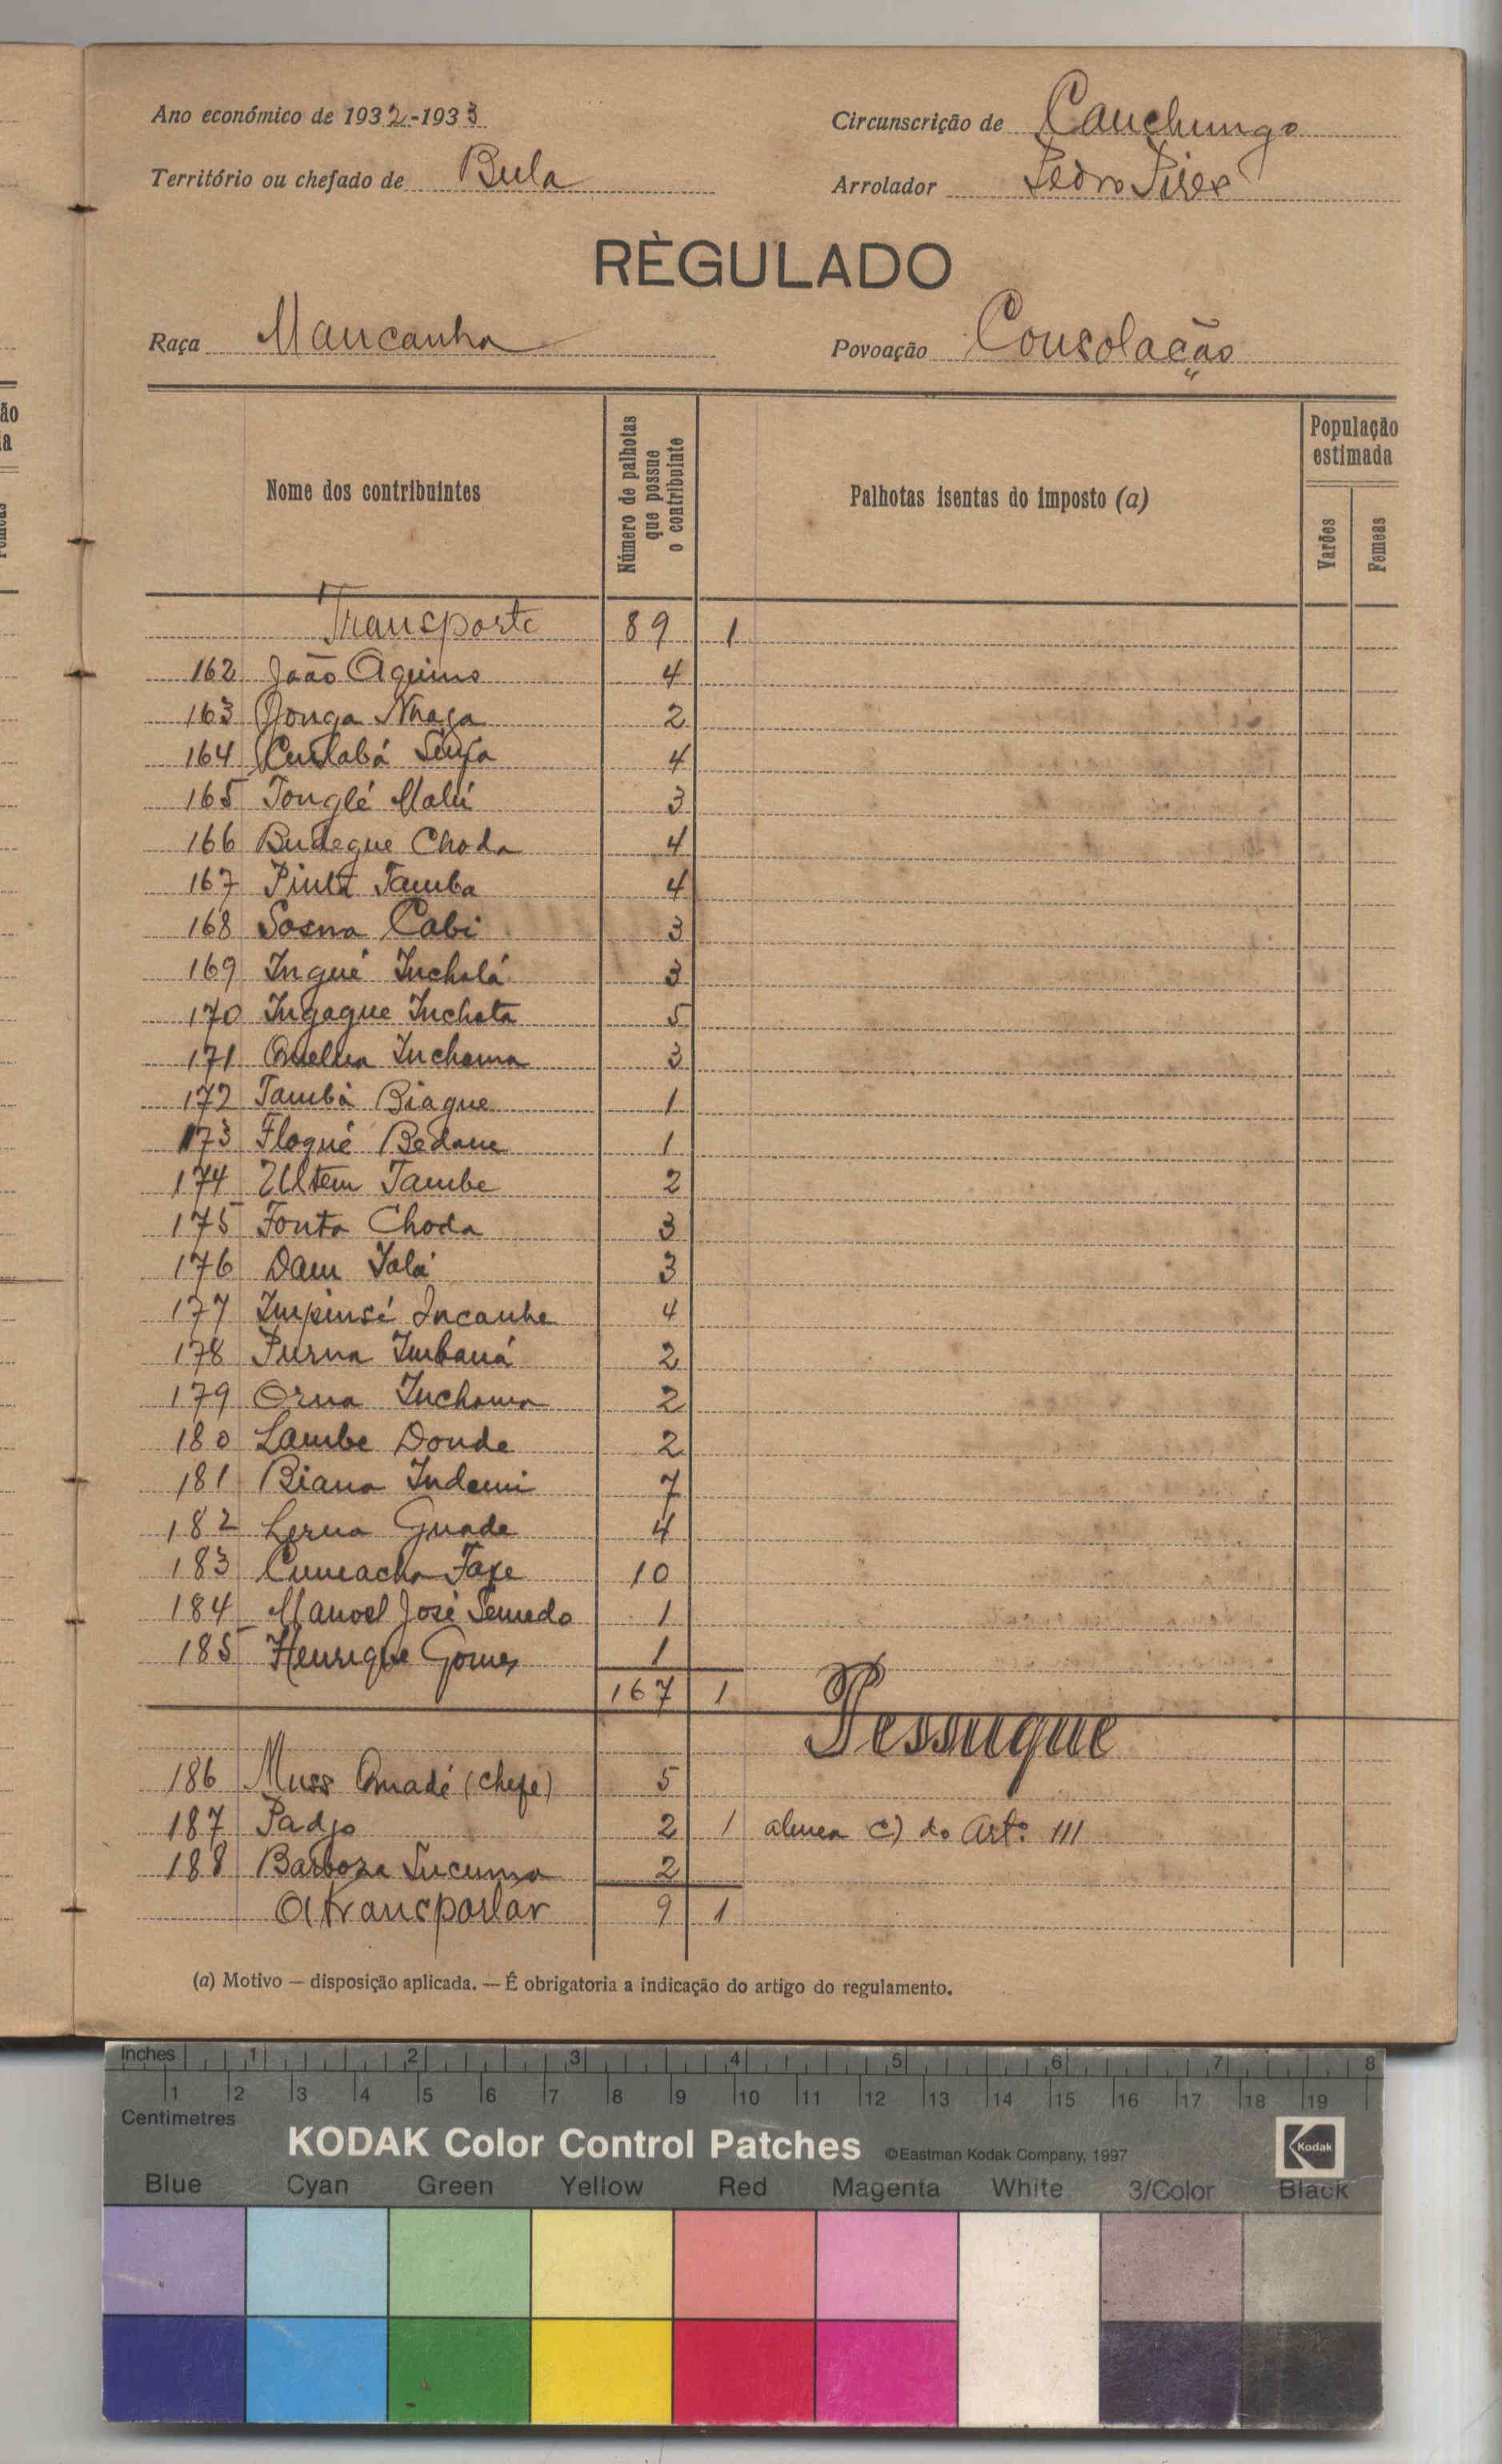 Ano económico de 1932-1933
Circunscrição de Cauchungo
Território ou chefado de Bula
Arrolador Pedro Pires
RÈGULADO
Raça Mancanha
Povoação Consolação
Nome dos contribuintes
Número de palhotas que possue o contribuinte
Palhotas isentas do imposto (a)
População estimada
Varões
Femeas
Transporte 89 1
162 João Aquino 4
163 Jonga Nhaga 2
164 4
165 Tonglé Malú 3
166 Budegue Choda 4
167 Pinta Tamba 4
168 Sosna Cabi 3
169 Ingué Inchalá 3
170 Ingague Inchata 5
171 Inchama 3
172 Tambá Biague 1
173 Floqué Bedam 1
174 Ultem Tambe 2
175 Fonta Choda 3
176 Dam Ialá 3
177 Impinsé Incanhe 4
178 Purna Imbaná 2
179 Orna Inchama 2
180 Lambe Donde 2
181 Biana Indami 7
182 Lerna Guade 4
183 Cumacha Faxe 10
184 Manoel José Semedo 1
185 Henrique Gomes 1
167 1
Pessugue
186 Muss Amadé (chefe) 5
187 Padjo 2 1 alinea c) do Artº 111
188 Barboza Sucuma 2
A transportar 9 1
(a) Motivo — disposição aplicada. — É obrigatoria a indicação do artigo do regulamento.
Inches 1 2 3 4 5 6 7 8
1 2 3 4 5 6 7 8 9 10 11 12 13 14 15 16 17 18 19
Centimetres
KODAK Color Control Patches ©Eastman Kodak Company, 1997 Kodak
Blue Cyan Green Yellow Red Magenta White 3/Color Black